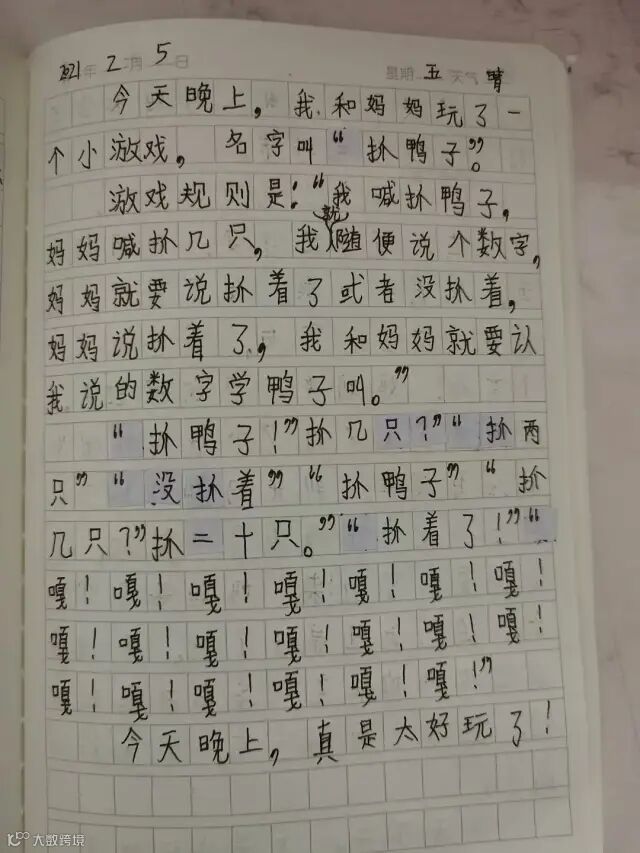 2021年2月5日 星期五 天气晴
今天晚上，我和妈妈玩了一
个小游戏，名字叫“抓鸭子”。
游戏规则是：“我喊抓鸭子，
妈妈喊抓几只，我就随便说个数字，
妈妈就要说抓着了或者没抓着，
妈妈说抓着了，我和妈妈就要认
我说的数字学鸭子叫。”
“抓鸭子！”抓几只？”“抓两
只”“没抓着”“抓鸭子”“抓
几只？”抓二十只。”“抓着了！”“
嘎！嘎！嘎！嘎！嘎！嘎！嘎！
嘎！嘎！嘎！嘎！嘎！嘎！嘎！
嘎！嘎！嘎！嘎！嘎！嘎！”
今天晚上，真是太好玩了！
大数跨境